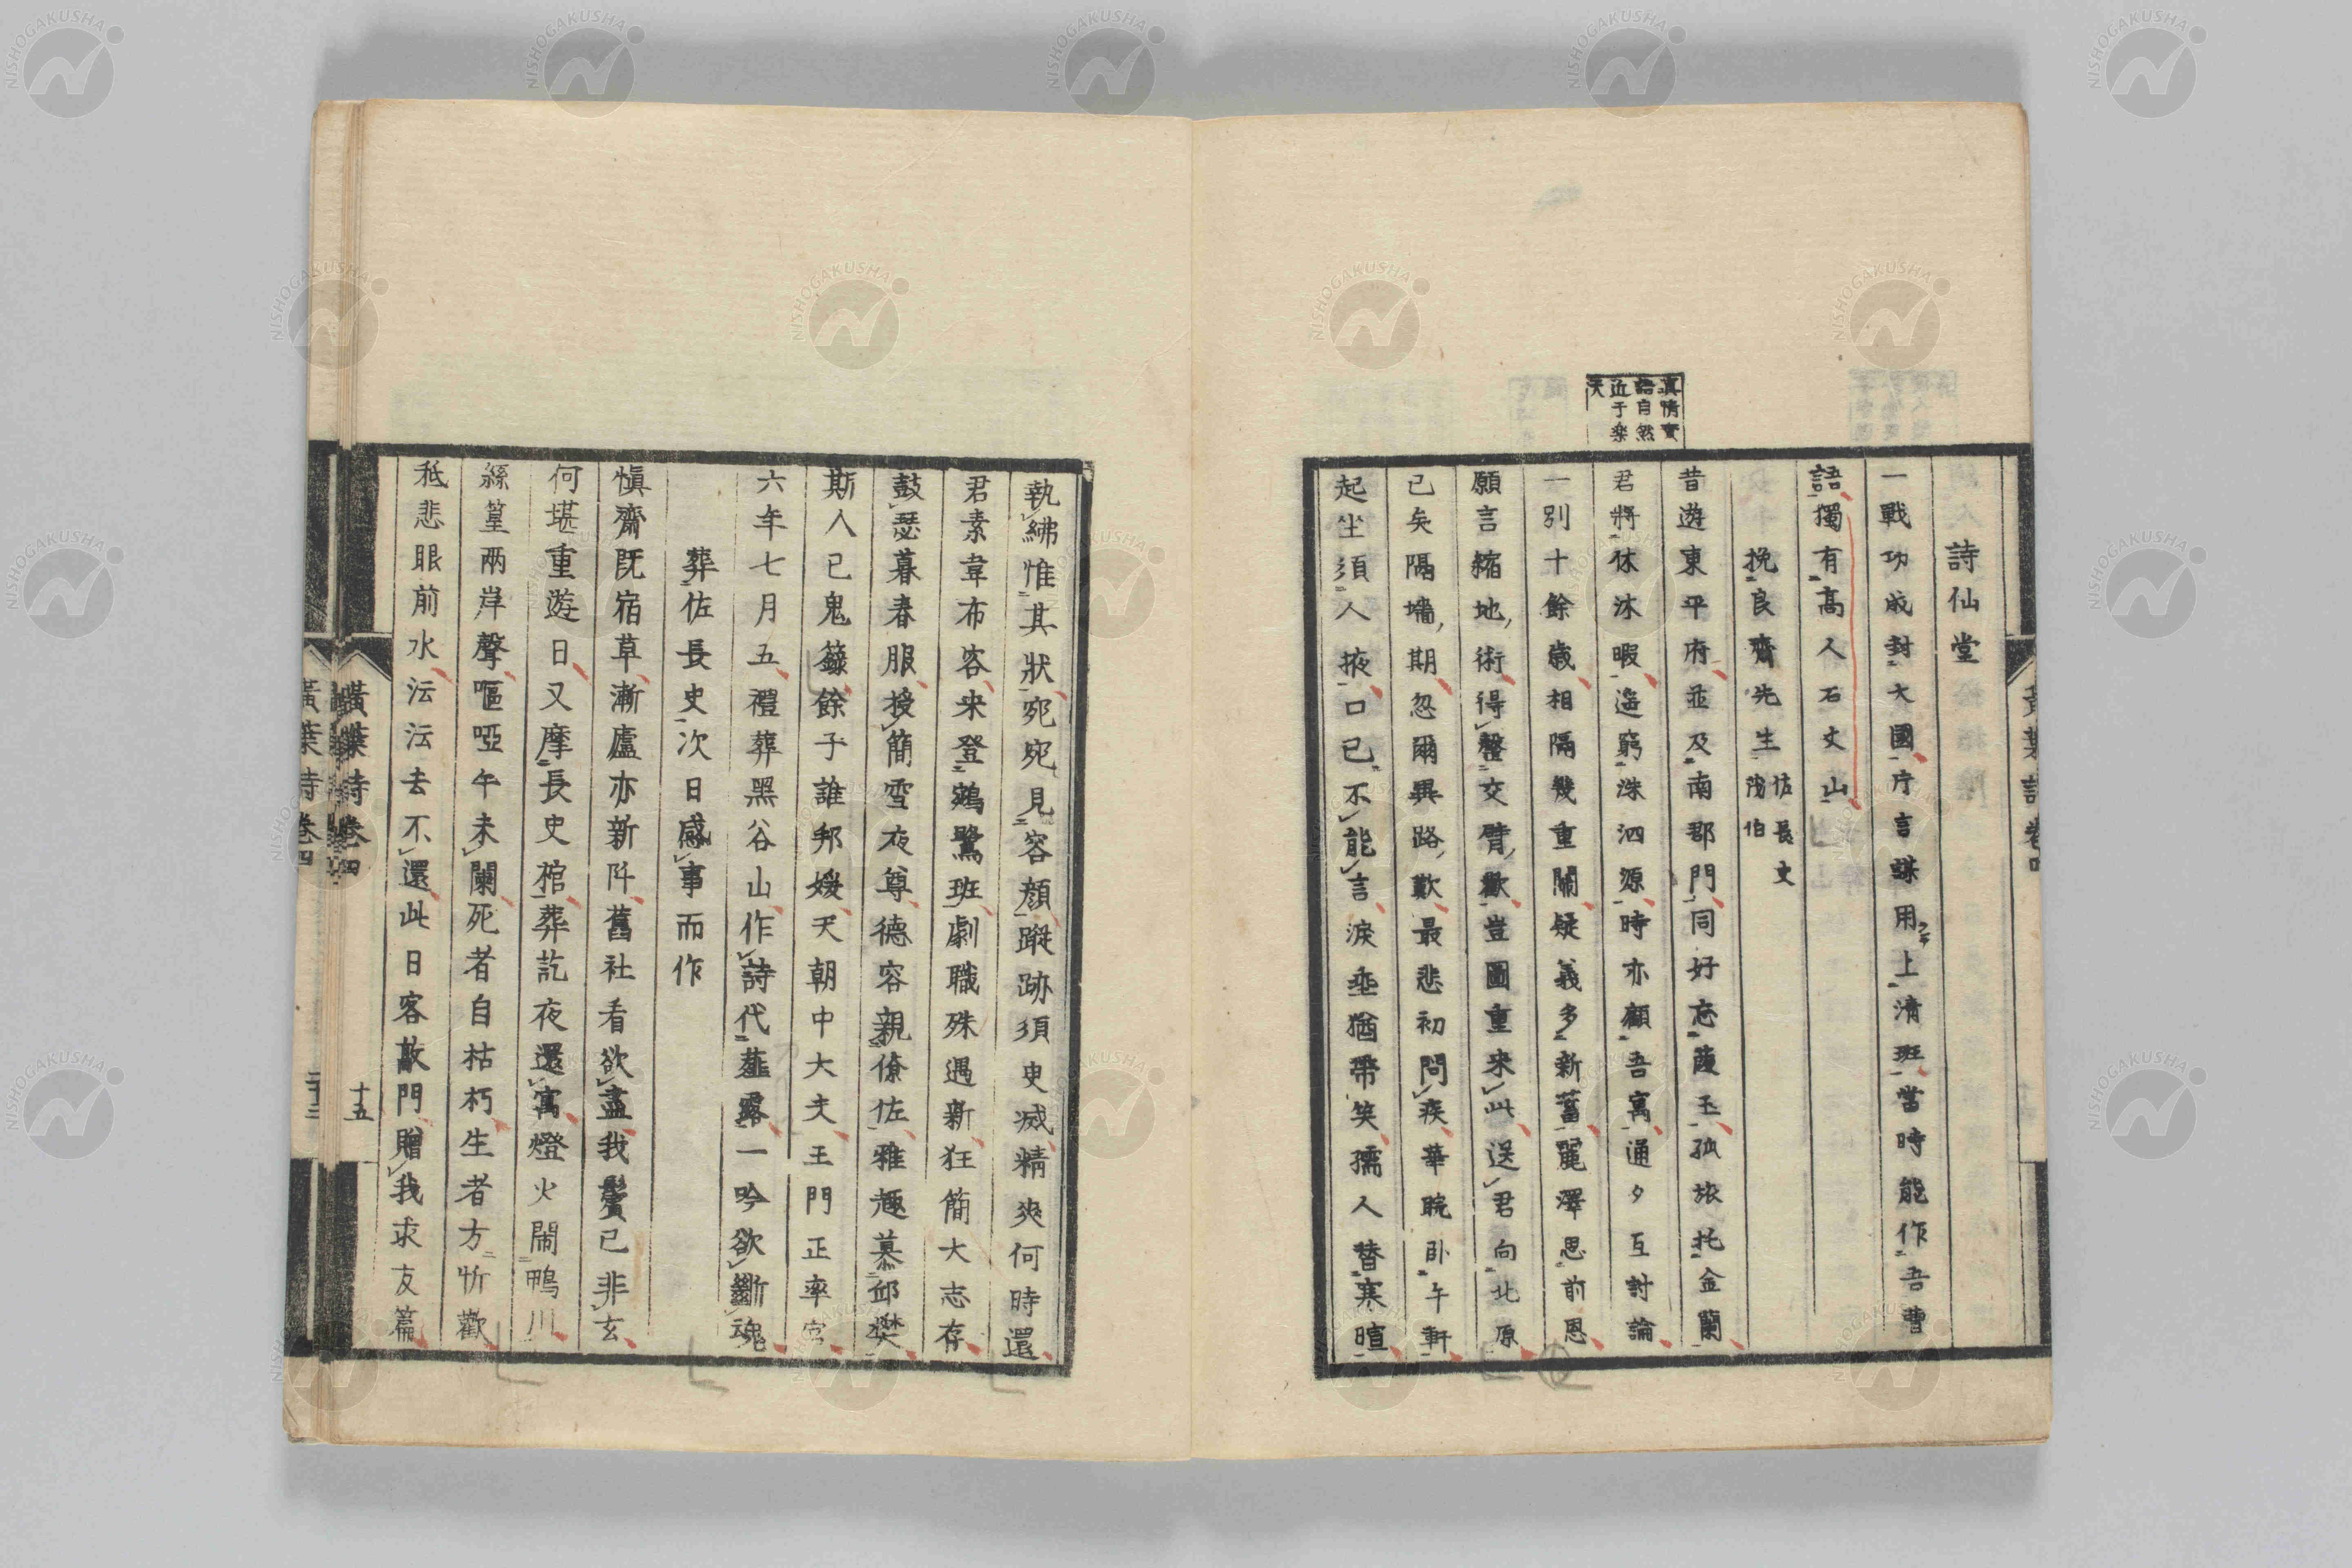 真情實
語自然
近于樂
天
詩仙堂
一戰功成封大國片言謀用上清班當時能作吾曹
語獨有高人石丈山
挽良齋先生佐長史
茂伯
昔遊東平府並及南郡門同好忘蔆玉孤旅托金蘭
君將休沐暇遙窮洙泗源時亦顧吾寓通夕互討論
一別十餘歳相隔幾重關疑義多新蓄麗澤思前恩
願言縮地術得罄交臂歡豈圖重來此送君向北原
已矣隔墻期忽爾異路歎最悲初問疾華睆臥午軒
起坐須人掖口已不能言淚垂猶帶笑孺人替寒暄
執紼惟其狀宛宛見容顔蹤跡須史滅精爽何時還
君素韋布客来登鵷鷺班劇職殊遇新狂簡大志存
鼓瑟暮春服授簡雪夜尊德容親僚佐雅趣慕邱樊
斯人已鬼籙餘子誰邦媛天朝中大夫王門正率官
六年七月五禮葬黑谷山作詩代薤露一吟欲斷魂
葬佐長史次日感事而作
愼齋既宿草漸廬亦新阡舊社看欲盡我鬢已非玄
何堪重遊日又摩長史棺葬訖夜還寓燈火鬧鴨川
絲篁兩岸聲嘔啞午未闌死者自枯朽生者方忻歡
秪悲眼前水沄沄去不還此日客敲門贈我求友篇
黃葉詩卷四
十五
NISHOGAKUSHA